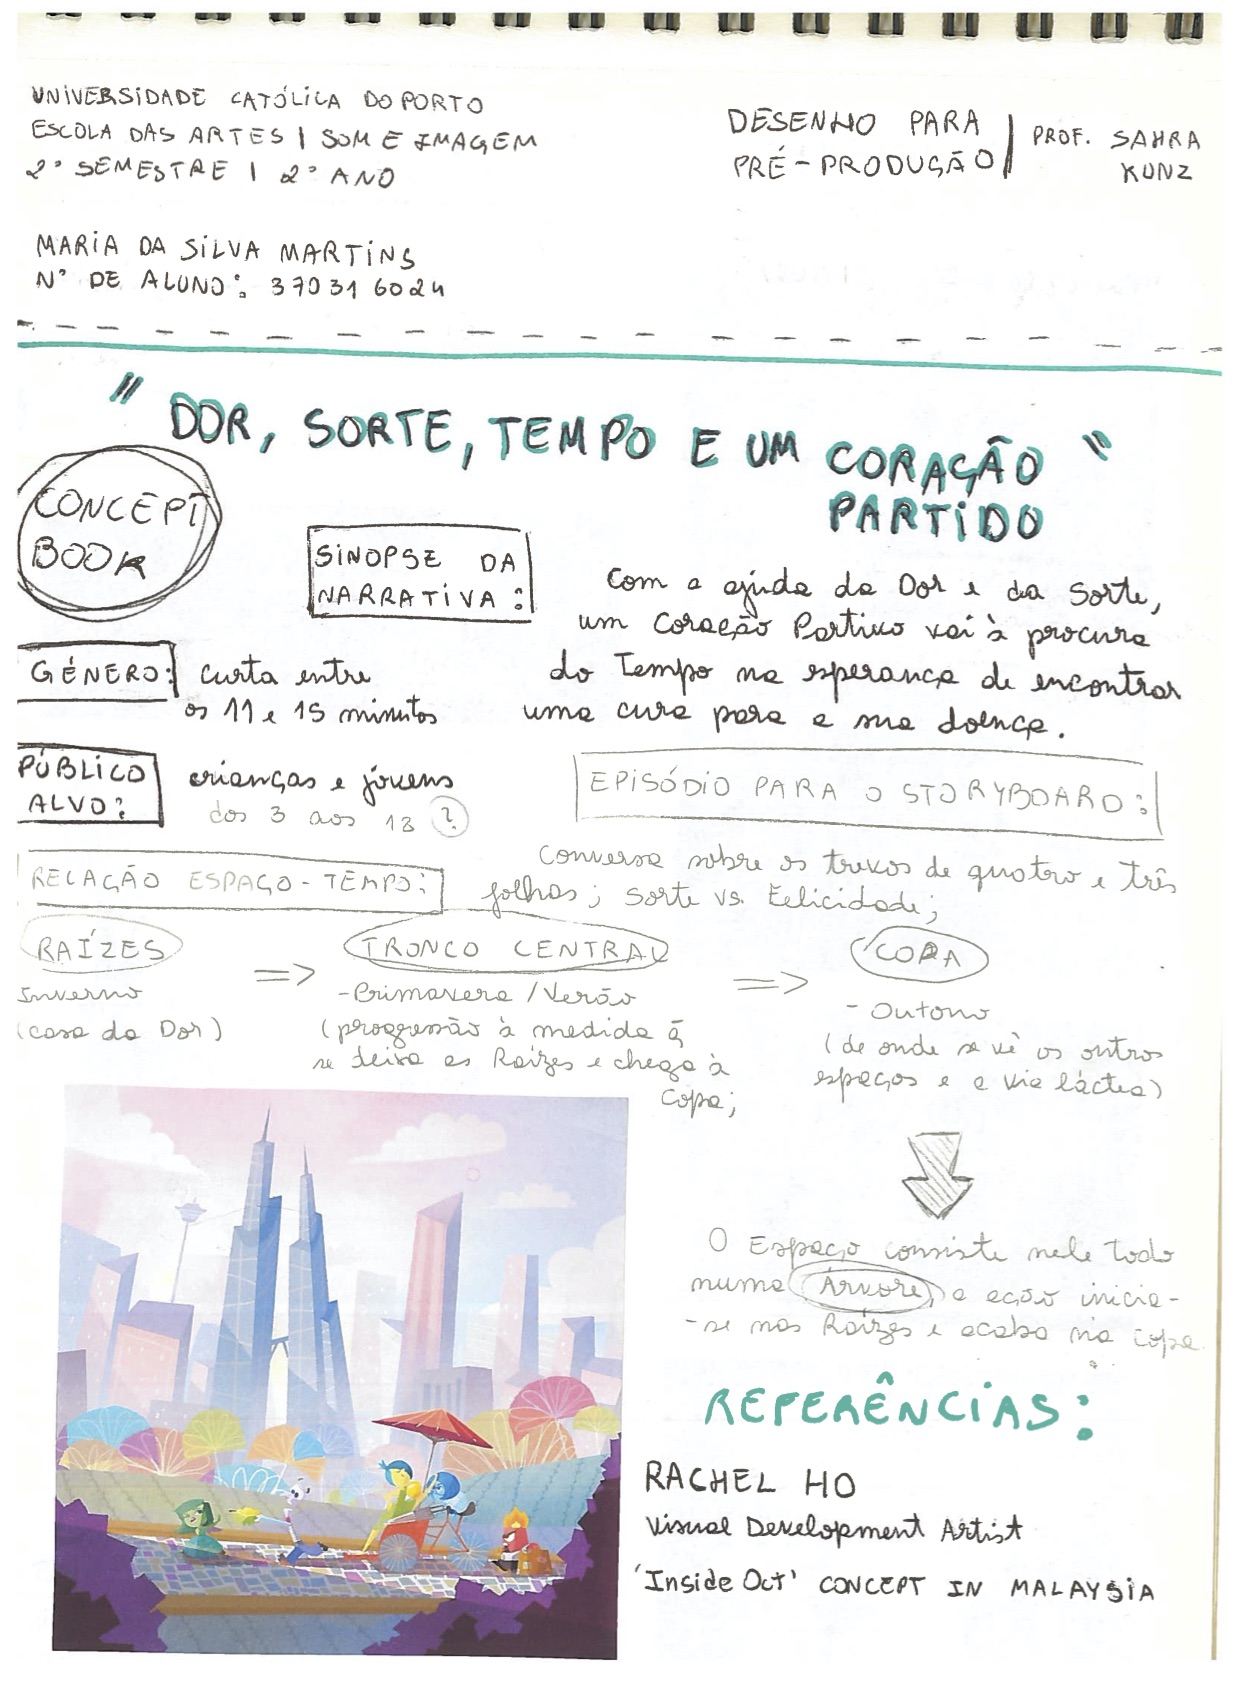 UNIVERSIDADE CATÓLICA DO PORTO
ESCOLA DAS ARTES | SOM E IMAGEM
2º SEMESTRE | 2º ANO
DESENHO PARA
PRÉ-PRODUÇÃO
PROF. SAHRA
KUNZ
MARIA DA SILVA MARTINS
Nº DE ALUNO: 370316024
"DOR, SORTE, TEMPO E UM CORAÇÃO"
PARTIDO
CONCEPT
BOOK
SINOPSE DA
NARRATIVA:
Com a ajuda da Dor e da Sorte,
um Coração Partido vai à procura
do Tempo na esperança de encontrar
uma cura para a sua doença.
GÉNERO: curta entre
os 11 e 15 minutos
PÚBLICO
ALVO:
crianças e jovens
dos 3 aos 13 ?
EPISÓDIO PARA O STORYBOARD:
Conversa sobre os trevos de quatro e três
folhas; Sorte vs. Felicidade;
RELAÇÃO ESPAÇO-TEMPO:
RAÍZES
Inverno
(casa da Dor)
=>
TRONCO CENTRAL
- Primavera / Verão
(progressão à medida q̃
se deixa as Raízes e chega à
copa;
=>
COPA
- Outono
(de onde se vê os outros
espaços e a via láctea)
O Espaço consiste nele todo
numa Árvore, a ação inicia-
-se nas Raízes e acaba na copa.
REFERÊNCIAS:
RACHEL HO
Visual Development Artist
'Inside Out' CONCEPT IN MALAYSIA